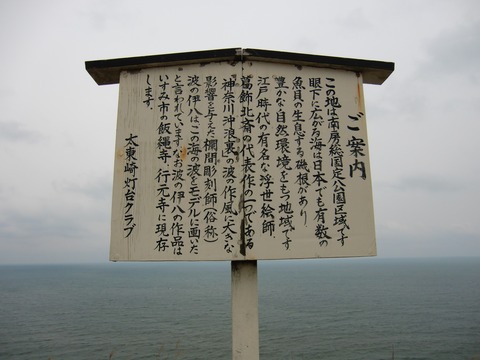 ご案内
この地は南房総国定公園区域です
眼下に広がる海は日本でも有数の
魚貝の生息する磯根があり
豊かな自然環境をもつ地域です
江戸時代の有名な浮世絵師.
葛飾北斎の代表作の一つである
神奈川沖浪裏の波の作風に大きな
影響を与えた欄間彫刻師(俗称)
波の伊八はこの海の波をモデルに画いた
と言われています.なお波の伊八の作品は
いすみ市の飯縄寺.行元寺に現存
します.
太東崎灯台クラブ